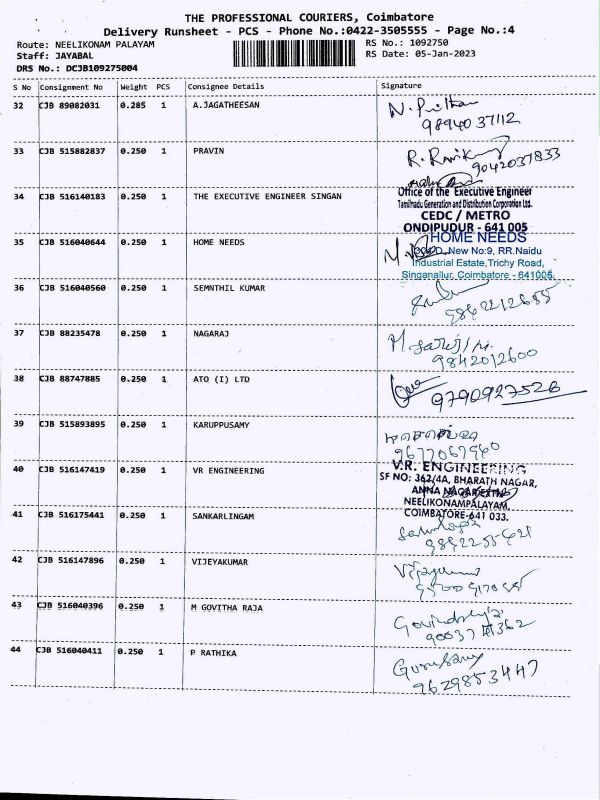 THE PROFESSIONAL COURIERS, Coimbatore
Delivery Runsheet - PCS - Phone No.:0422-3505555 - Page No.:4
Route: NEELIKONAM PALAYAM
RS No.: 1092750
Staff: JAYABAL
RS Date: 05-Jan-2023
DRS No.: DCJB109275004
S No Consignment No Weight PCS Consignee Details Signature
32 CJB 89082031 0.285 1 A.JAGATHEESAN
9894037112
33 CJB 515882837 0.250 1 PRAVIN
9042037833
34 CJB 516140183 0.250 1 THE EXECUTIVE ENGINEER SINGAN
Office of the Executive Engineer
Tamilnadu Generation and Distribution Corporation Ltd.
CEDC / METRO
ONDIPUDUR - 641 005
35 CJB 516040644 0.250 1 HOME NEEDS
HOME NEEDS
New No:9, RR.Naidu
Industrial Estate,Trichy Road,
Singanallur, Coimbatore - 641005.
36 CJB 516040560 0.250 1 SEMNTHIL KUMAR
37 CJB 88235478 0.250 1 NAGARAJ
9842012600
38 CJB 88747885 0.250 1 ATO (I) LTD
9790927526
39 CJB 515893895 0.250 1 KARUPPUSAMY
9677067960
40 CJB 516147419 0.250 1 VR ENGINEERING
V.R. ENGINEERING
SF NO: 362/4A, BHARATH NAGAR,
ANNA NAGAR EXTN
NEELIKONAMPALAYAM,
COIMBATORE-641 033.
41 CJB 516175441 0.250 1 SANKARLINGAM
42 CJB 516147896 0.250 1 VIJEYAKUMAR
43 CJB 516040396 0.250 1 M GOVITHA RAJA
44 CJB 516040411 0.250 1 P RATHIKA
Gurusamy
9629853447